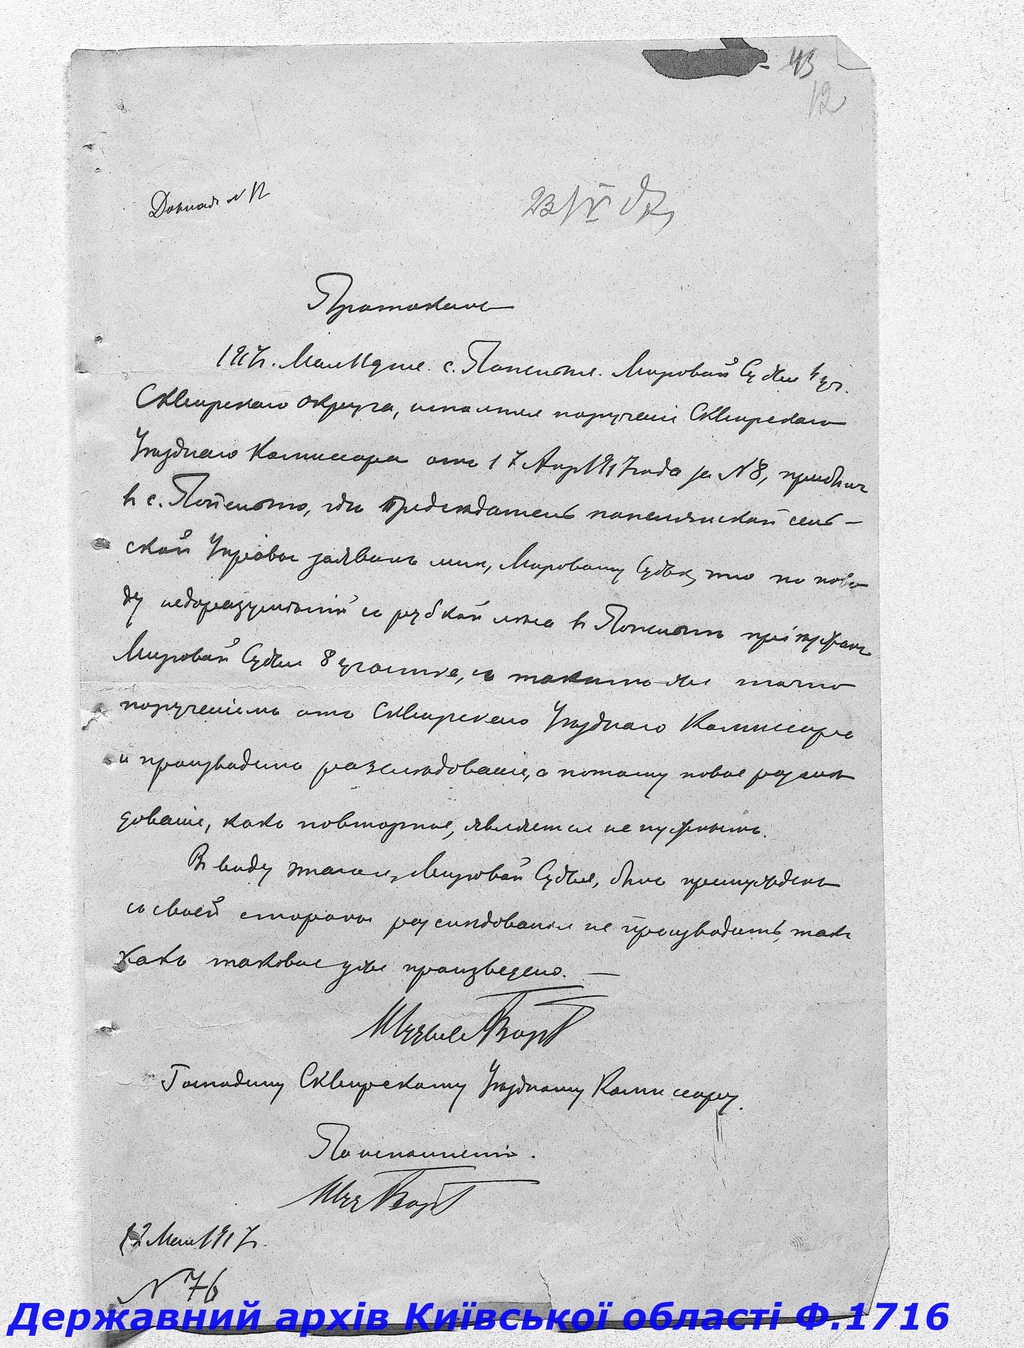 43
12
Доклад N 12
23/V
Протоколъ
1917г. Мая 11 дня. с. Попельня. Мировой Судья 4 уч.
Сквирскаго округа, исполняя порученіе Сквирскаго
Уѣзднаго Комиссара отъ 17 Апр 1917 года за N 8, прибылъ
въ с. Попельню, гдѣ Предсѣдатель попельнянской сель-
ской Управы заявилъ мнѣ, Мировому Судьѣ, что по пово
ду недоразумѣній съ рубкой лѣса въ Попельню пріѣзжалъ
Мировой Судья 8 участка, съ такимъ же точно
порученіемъ отъ Сквирскаго Уѣзднаго Комиссара
и производилъ разслѣдованіе, а потому новое разслѣ
дованіе, какъ повторное, является не нужнымъ.
Въ виду этого я, Мировой Судья, былъ принужденъ
со своей стороны разслѣдованія не производить, такъ
какъ таковое уже произведено. —
Господину Сквирскому Уѣздному Комиссару.
По исполненіи.
12 Мая 1917г.
N 76
Державний архів Київської області Ф.1716